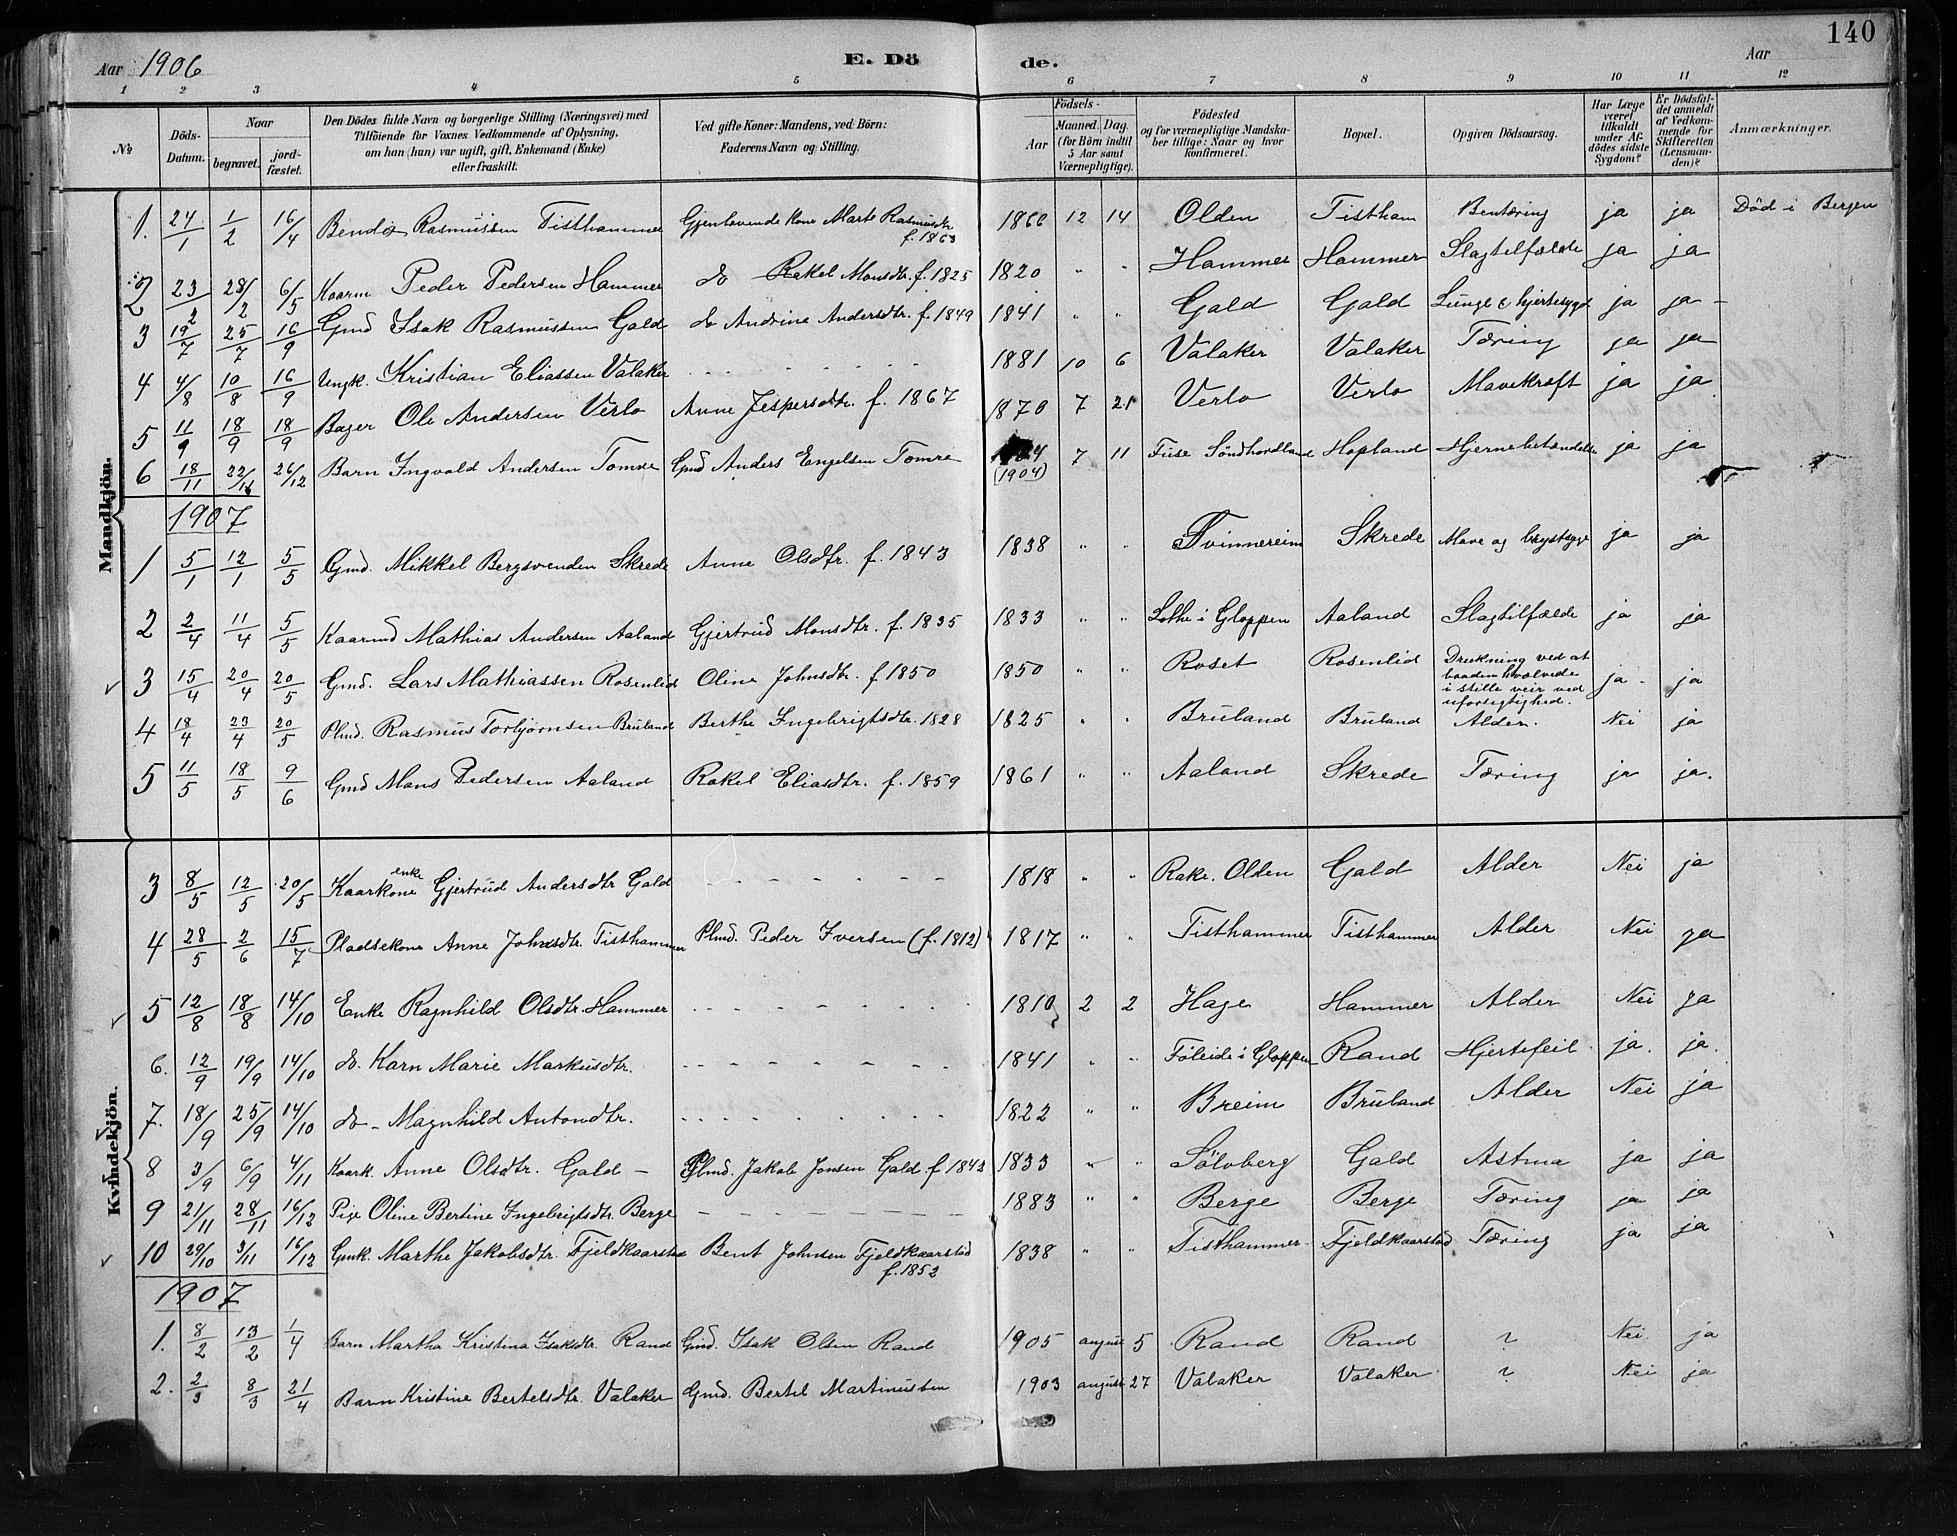 140
Aar 1906 E. Döde. Aar
1 2 3 4 5 6 7 8 9 10 11 12
№ Döds-Datum. Naar begravet. jordfæstet. Den Dödes fulde Navn og borgerlige Stilling (Næringsvei) med Tilföiende for Voxnes Vedkommende af Oplysning, om han (hun) var ugift, gift, Enkemand (Enke) eller fraskilt. Ved gifte Koner: Mandens, ved Börn: Faderens Navn og Stilling. Födsels- Aar Maaned. Dag. (for Börn indtil 5 Aar samt Værnepligtige). Födested og for værnepligtige Mandskaber tillige: Naar og hvor konfirmeret. Bopæl. Opgiven Dödsaarsag. Har Læge været tilkaldt under Afdödes sidste Sygdom? Er Dödsfaldet anmeldt af Vedkommende for Skifteretten (Lensmanden)? Anmærkninger.
Mandkjön.
1. 24/1 1/2 16/4 Bendix Rasmussen Tisthammer Gjenlevende kone Marte Rasmusdtr f. 1863 1866 12 14 Olden Tistham Bentæring ja ja Död i Bergen
2 23/2 28/2 6/5 Kaarm Peder Pedersen Hammer do Rakel Monsdtr. f. 1825 1820 " " Hammer Hammer Slagtilfælde ja ja
3 19/7 25/7 16/9 Gmd Isak Rasmussen Gald do Andrine Andersdtr. f. 1849 1841 " " Gald Gald Lunge & hjertesygd ja ja -
4 4/8 10/8 16/9 Ungk. Kristian Eliassen Valaker - - - - - - 1881 10 6 Valaker Valaker Tæring ja ja
5 11/9 18/9 18/9 Bager Ole Andersen Verlo Anne Jespersdtr. f. 1867 1870 7 21 Verlo Verlo Mavekræft ja ja
6 18/11 22/11 26/12 Barn Ingvald Andersen Tomre Gmd Anders Engelsen Tomre (1904) 7 11 Fuse Söndhordland Hopland Hjernebetændelse ja ja
1907
1 5/1 12/1 5/5 Gmd. Mikkel Bergsvenden Skrede Anne Olsdtr. f. 1843 1838 " " Tvinnereim Skrede Mave og brystsyge ja ja
2 2/4 11/4 5/5 Kaarmd Mathias Andersen Aaland Gjertrud Monsdtr. f. 1835 1833 " " Lothe i Gloppen Aaland Slagtilfælde ja ja
3 15/4 20/4 20/5 Gmd. Lars Mathiassen Rosenlid Oline Johnsdtr. f 1850 1850 " " Roset Rosenlid Drukning ved at baaden hvælvede i stille veir ved uforsigtighed. ja - ja
4 18/4 23/4 20/5 Plmd. Rasmus Torbjørnsen Bruland Berthe Ingebrigtsdtr. 1828 1825 " " Bruland Bruland Alder. Nei ja
5 11/5 18/5 9/6 Gmd Mons Pedersen Aaland Rakel Eliasdtr. f. 1859 1861 " " Aaland Skrede Tæring ja ja.
Kvindekjön.
3 8/5 12/5 20/5 Kaarkone enke Gjertrud Andersdtr Gald - - - - - - 1818 " " Rake. Olden Gald Alder Nei ja
4 28/5 2/6 15/7 Pladsekone Anne Johnsdtr. Tisthammer Plmd. Peder Iversen (f. 1812) 1817 " " Tisthammer Tisthammer Alder Nei ja
5 12/8 18/8 14/10 Enke Ragnhild Olsdtr. Hammer - - - - - - 1810 2 2 Hage Hammer Alder Nei ja
6. 12/9 19/9 14/10 do. Karn Marie Markusdtr. - - - - - - 1841 " " Føleide i Gloppen Rand Hjertefeil ja. ja.
7. 18/9 25/9 14/10 do - Magnhild Antondtr. - - - - - - 1822 " " Breim Bruland Alder Nei ja
8 3/9 6/9 4/11 Kaark. Anne Olsdtr. Gald - Plmd. Jakob Jonsen Gald f. 1843 1833 " " Sölvberg Gald Astma ja ja
9 21/11 28/11 16/12 Pige Oline Bertine Ingebrigtsdtr. Berge - - - - - - 1883 " " Berge Berge Tæring ja ja
10 29/10 3/11 16/12 Gmk. Marthe Jakobsdtr. Fjeldkaarstad Bent Johnsen Fjeldkaarstad f. 1852 1838 " " Tisthammer Fjeldkaarstad Tæring ja ja
1907
1. 8/2 13/2 1/4 Barn Martha Kristina Isaksdtr. Rand Gmd. Isak Olsen Rand 1905 august 5 Rand Rand ? Nei. ja
2. 2/3 8/3 21/4 Barn Kristine Bertelsdtr. Valaker Gmd. Bertil Martinussen 1903 august 27 Valaker Valaker ? Nei ja